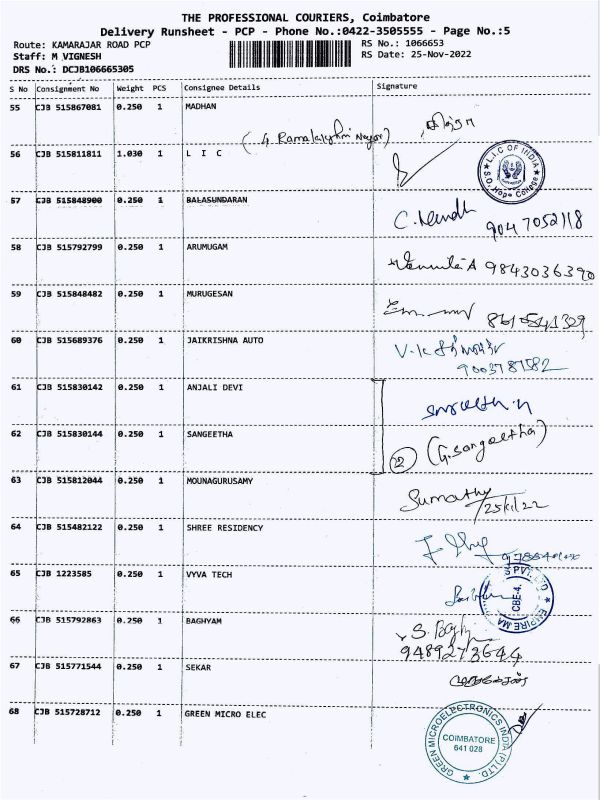 THE PROFESSIONAL COURIERS, Coimbatore
Delivery Runsheet - PCP - Phone No.:0422-3505555 - Page No.:5
Route: KAMARAJAR ROAD PCP RS No.: 1066653
Staff: M VIGNESH RS Date: 25-Nov-2022
DRS No.: DCJB106665305
S No Consignment No Weight PCS Consignee Details Signature
55 CJB 515867081 0.250 1 MADHAN
56 CJB 515811811 1.030 1 L I C
L.I.C OF INDIA
S.O. Hope College
57 CJB 515848900 0.250 1 BALASUNDARAN
9047052118
58 CJB 515792799 0.250 1 ARUMUGAM
9843036390
59 CJB 515848482 0.250 1 MURUGESAN
60 CJB 515689376 0.250 1 JAIKRISHNA AUTO
9003787582
61 CJB 515830142 0.250 1 ANJALI DEVI
62 CJB 515830144 0.250 1 SANGEETHA
2 (G.Sangeetha)
63 CJB 515812044 0.250 1 MOUNAGURUSAMY
Sumathy
25/11/22
64 CJB 515482122 0.250 1 SHREE RESIDENCY
65 CJB 1223585 0.250 1 VYVA TECH
CBE-4.
66 CJB 515792863 0.250 1 BAGHYAM
9489273644
67 CJB 515771544 0.250 1 SEKAR
68 CJB 515728712 0.250 1 GREEN MICRO ELEC
GREEN MICROELECTRONICS INDIA (P) LTD.
COIMBATORE
641 028